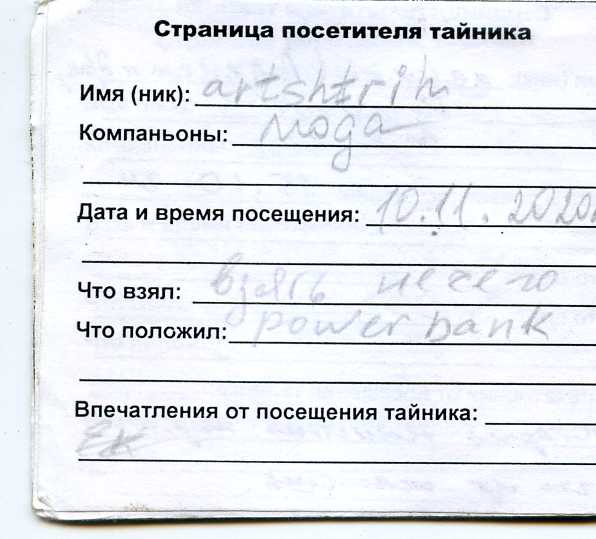 Страница посетителя тайника
Имя (ник): artshtrih
Компаньоны: мода
Дата и время посещения: 10.11.2020
Что взял: взять несего
Что положил: power bank
Впечатления от посещения тайника: